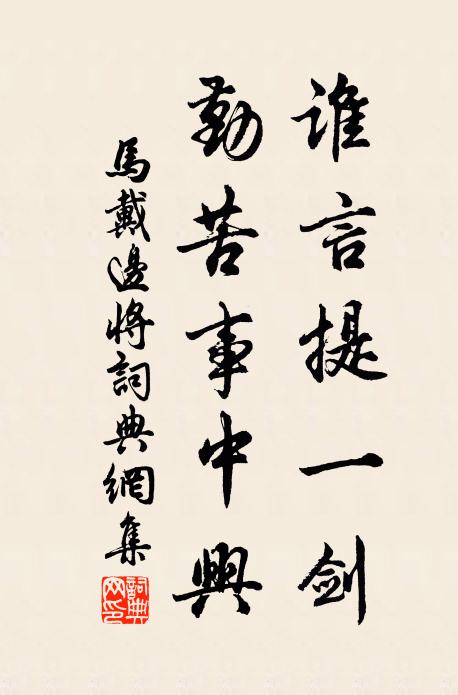 誰言提一劍
勤苦事中興
馬戴邊將詞典網集
詞典網印